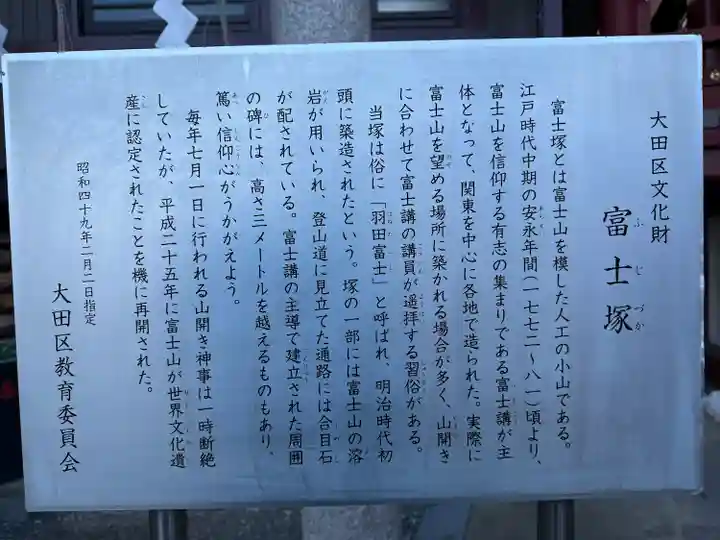 大田区文化財
富士塚
富士塚とは富士山を模した人工の小山である。
江戸時代中期の安永年間(一七七二〜八一)頃より、
富士山を信仰する有志の集まりである富士講が主
体となって、関東を中心に各地で造られた。実際に
富士山を望める場所に築かれる場合が多く、山開き
に合わせて富士講の講員が遥拝する習俗がある。
当塚は俗に「羽田富士」と呼ばれ、明治時代初
頭に築造されたという。塚の一部には富士山の溶
岩が用いられ、登山道に見立てた通路には合目石
が配されている。富士講の主導で建立された周囲
の碑には、高さ三メートルを越えるものもあり、
篤い信仰心がうかがえよう。
毎年七月一日に行われる山開き神事は一時断絶
していたが、平成二十五年に富士山が世界文化遺
産に認定されたことを機に再開された。
昭和四十九年二月二日指定
大田区教育委員会